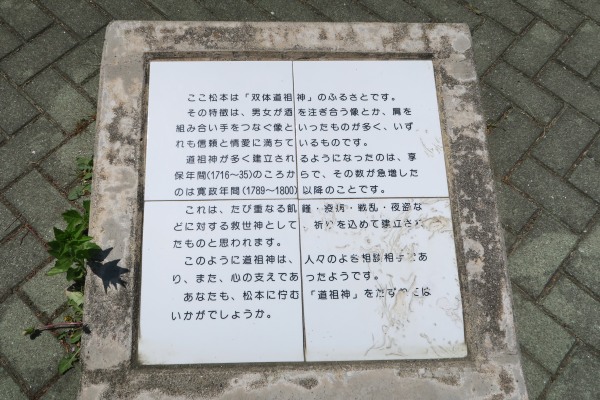 ここ松本は「双体道祖神」のふるさとです。
その特徴は、男女が酒を注ぎ合う像とか、肩を
組み合い手をつなぐ像といったものが多く、いず
れも信頼と情愛に満ちているものです。
道祖神が多く建立されるようになったのは、享
保年間(1716〜35)のころからで、その数が急増した
のは寛政年間(1789〜1800)以降のことです。
これは、たび重なる飢饉・疫病・戦乱・夜盗な
どに対する救世神として、祈りを込めて建立され
たものと思われます。
このように道祖神は、人々のよき相談相手であ
り、また、心の支えであったようです。
あなたも、松本に佇む「道祖神」をたずねては
いかがでしょうか。